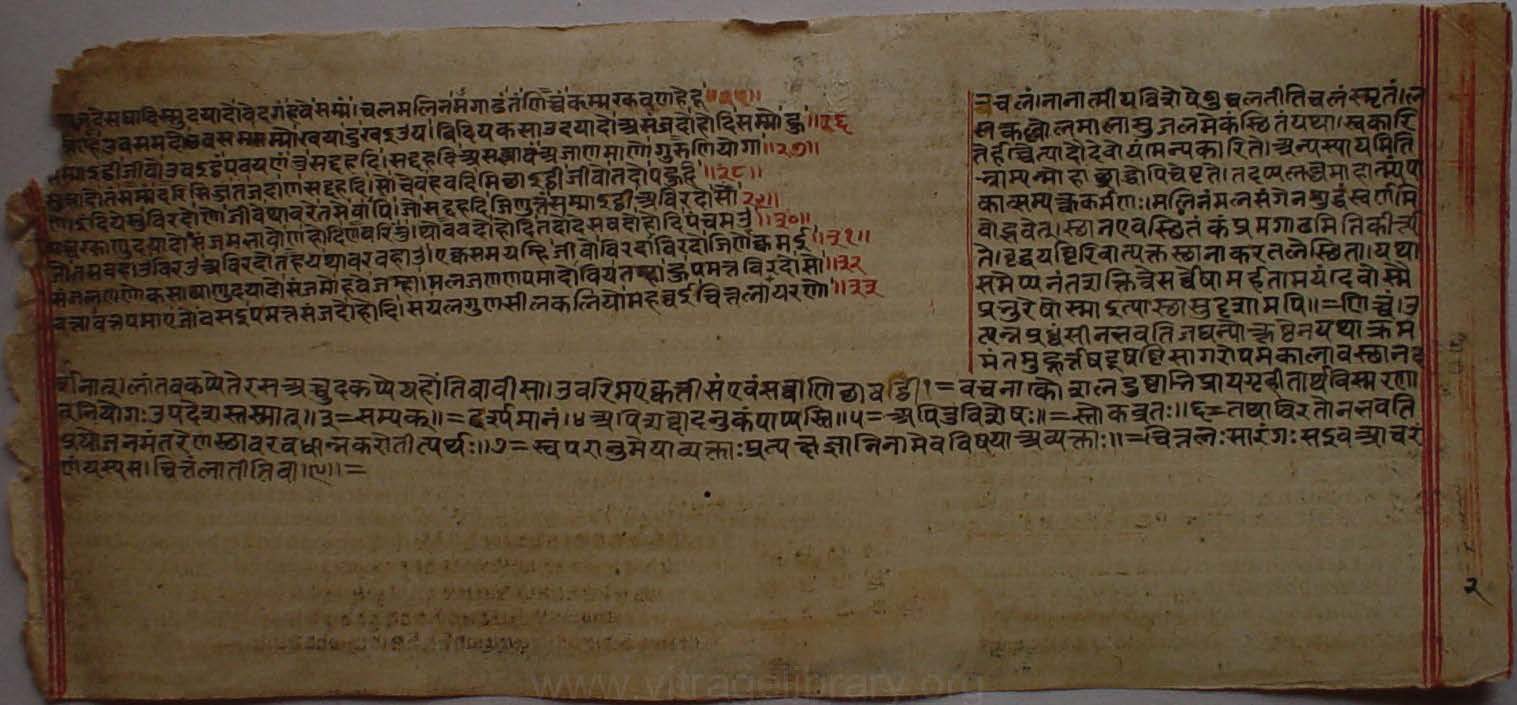 देसघादिस्सुदयादो वेदगं हवे सम्मं। चलमलिनमगाढं तं णिच्चं कम्मरकवणहेदू॥२५॥
उवसमदो उवसमसम्मो खया दु खइउ य। बिदियकसाउदयादो असंजदो होदि सम्मो हु॥२६
सम्माइट्ठी जीवो उवइट्ठं पवयणं तु सद्दहदि। सद्दहदि असब्भावं अजाणमाणो गुरुणियोगा॥२७॥
सुत्तादो तं सम्मं दरिसिज्जंतं जदा ण सद्दहदि। सो चेव हवदि मिच्छाइट्ठी जीवो तदो पहुदि॥२८॥
णो इंदियेसु विरदो णो जीवे थावरे तसे वापि। जो सद्दहदि जिणुत्तं सम्माइट्ठी अविरदो सो २९॥
पच्चक्खाणुदयादो संजमभावो ण होदि णवरिं तु। थोववदो होदि तदो देसवदो होदि पंचमउ॥३०॥
जो तसवहाउ विरउ अविरदो तह य थावरवहाउ। एक्कसमयम्हि जीवो विरदाविरदो जिणेक्कमई॥३१॥
संजलणणोकसायाणुदयादो संजमो हवे जम्हा। मलजणणपमादो वि य तम्हा हु पमत्तविरदो सो॥३२
वत्तावत्तपमाए जो वसइ पमत्तसंजदो होदि। सयलगुणसीलकलियो महव्वई चित्तलायरणो॥३३
चलं। नानात्मीयविशेषेषु चलतीति चलं स्मृतं। ल
सत्कल्लोलमालासु जलमेकं स्थितं यथा। स्वकारि
तेर्हच्चैत्यादौ देवोयं मेन्यकारिते। अन्यस्यायमिति
भ्राम्यन्मोहाच्छ्राद्धोपि चेष्टते। तदप्यलब्धमाहात्म्यं पा
कात्सम्यक्त्वकर्मणः। मलिनं मलसंगेन शुद्धं स्वर्णमि
वोद्भवेत्। स्थान एव स्थितं कंप्रमगाढमिति कीर्त्य
ते। वृद्धयष्टिरिवात्यक्तस्थाना करतले स्थिता। यथा
समेप्यनंतशक्तित्वे सर्वेषामर्हतामयं। देवोस्मै
प्रभुरेषोस्मा इत्यास्था सुदृशामपि॥=णिच्चं। उ
त्पन्नप्रध्वंसी न भवति जघन्योत्कृष्टेन यथाक्रम
मंतमुहूर्त्तषट्षष्टिसागरोपमकालावस्थानव
र्तिनात्। लांतवकप्पे तेरस अच्चुदकप्पे य होंति बावीसा। उवरिम एक्कत्तीसं एवं सव्वाणि छावट्ठि १=वचनात्को
र्नियोगः उपदेशस्तस्मात्॥३=सम्यक्॥=दर्श्यमानं।४ अपिशब्दादनुकंपाप्यस्ति॥५=अपि तु विशेषः॥=स्तोकव्रतः॥६=तथा विरतो न भवति
प्रयोजनमंतरेण स्थावरवधान्न करोतीत्यर्थः॥७=स्वपरानुमेया व्यक्ताः प्रत्यक्षज्ञानिनामेव विषया अव्यक्ताः॥=चित्रलः सारंगः सइव आचर
णं यस्य स। चित्तं लातीति वा।९।=
२
www.vitragelibrary.org